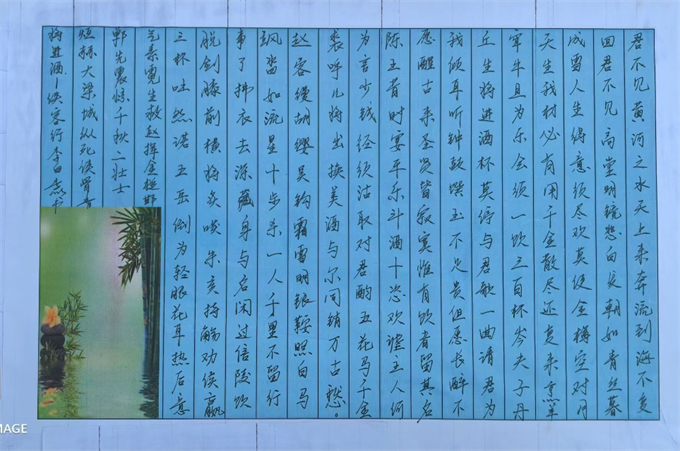 君不见黄河之水天上来奔流到海不复
回君不见高堂明镜悲白发朝如青丝暮
成雪人生得意须尽欢莫使金樽空对月
天生我材必有用千金散尽还复来烹羊
宰牛且为乐会须一饮三百杯岑夫子丹
丘生将进酒杯莫停与君歌一曲请君为
我倾耳听钟鼓馔玉不足贵但愿长醉不
愿醒古来圣贤皆寂寞惟有饮者留其名
陈王昔时宴平乐斗酒十恣欢谑主人何
为言少钱径须沽取对君酌五花马千金
裘呼儿将出换美酒与尔同销万古愁。
赵客缦胡缨吴钩霜雪明银鞍照白马
飒沓如流星十步杀一人千里不留行
事了拂衣去深藏身与名闲过信陵饮
脱剑膝前横将炙啖朱亥持觞劝侯嬴
三杯吐然诺五岳倒为轻眼花耳热后意
气素霓生救赵挥金槌邯
郸先震惊千秋二壮士
烜赫大梁城纵死侠骨香
将进酒-侠客行 李白
MAGE